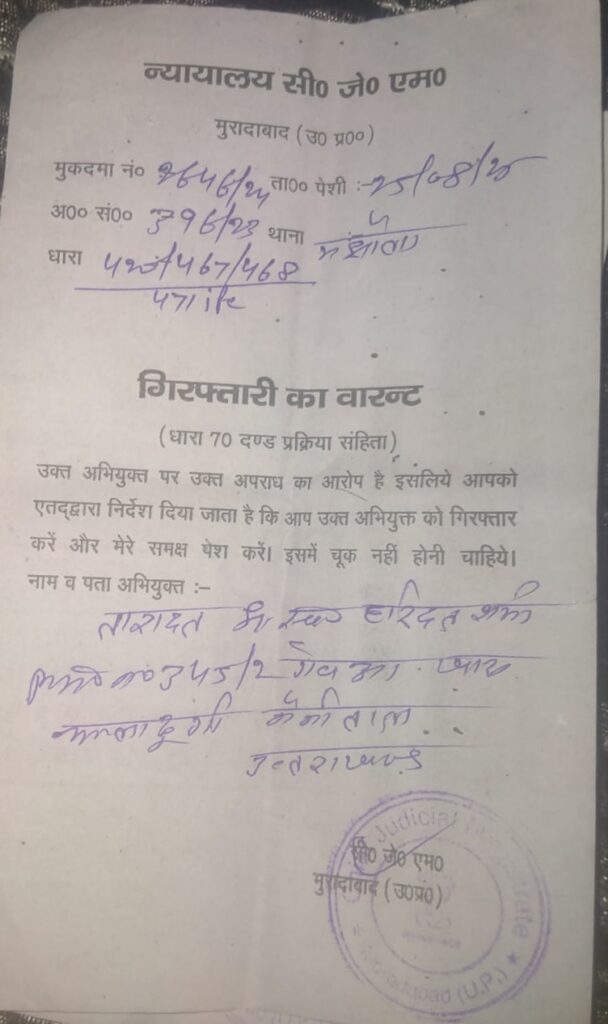 न्यायालय सी0 जे0 एम0
मुरादाबाद (उ0 प्र0०)
मुकदमा नं० ता०० पेशी :- 25/08/25
अ०० सं०० 396/23 थाना
धारा 420/467/468
471 IPC
गिरफ्तारी का वारन्ट
(धारा 70 दण्ड प्रक्रिया संहिता)
उक्त अभियुक्त पर उक्त अपराध का आरोप है इसलिये आपको
एतद्द्वारा निर्देश दिया जाता है कि आप उक्त अभियुक्त को गिरफ्तार
करें और मेरे समक्ष पेश करें। इसमें चूक नहीं होनी चाहिये।
नाम व पता अभियुक्त :-
तारादत्त हरिदत्त शर्मा
345/2
कालाढूंगी नैनीताल
उत्तराखण्ड
सी0 जे0 एम0
मुरादाबाद (उ0प्र0)
Judicial Magistrate
Moradabad (U.P.)